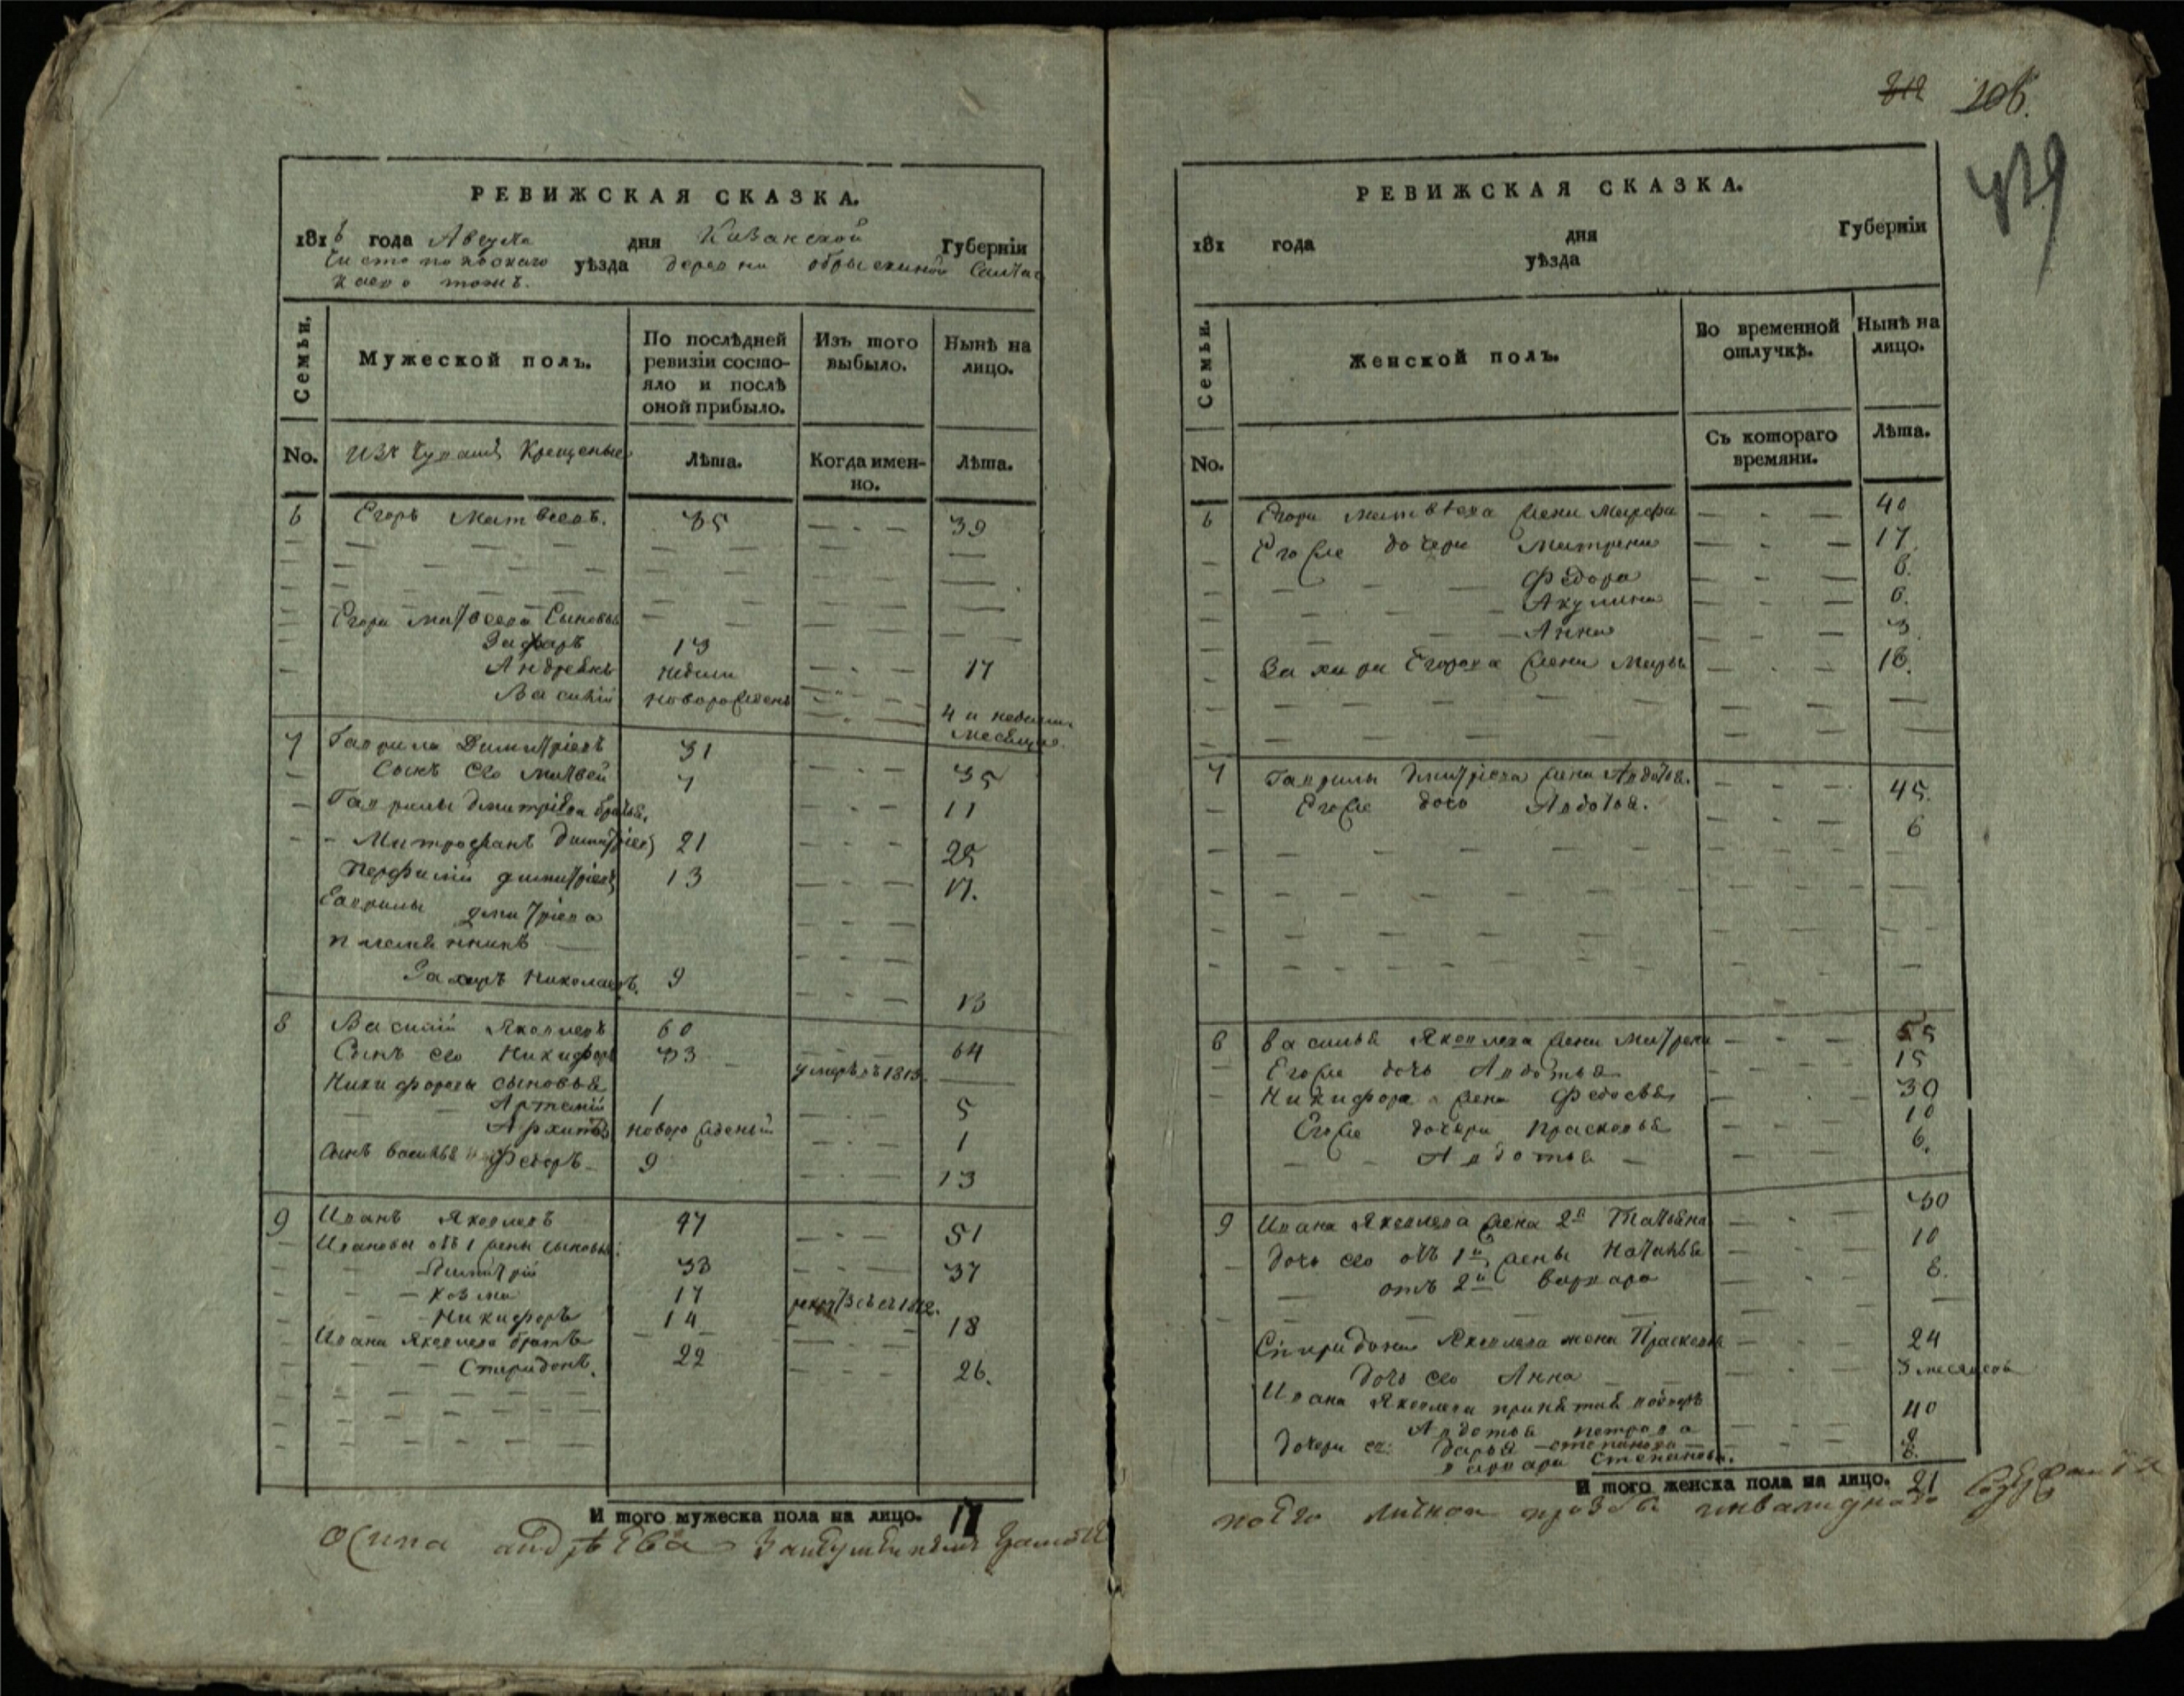 РЕВИЖСКАЯ СКАЗКА.
1816 года Августа дня Казанской Губерніи
Чистопольскаго уѣзда деревни
тожъ.
Семьи.
Мужеской полъ.
По послѣдней ревизіи состояло и послѣ оной прибыло.
Изъ того выбыло.
Нынѣ на лицо.
No.
Изъ Чувашъ Крещеные
Лѣта.
Когда имен-
но.
Лѣта.
6 Егоръ Матвеевъ. 35 39
Егора Матвеева Сыновья
Захаръ 13 17
Андреянъ недели 4 и недели
Василій новорожденъ месяца
7 Гаврила Димитріевъ 31 35
Сынъ его Матвей 7 11
Гаврилы Дмитріева братья.
Митрофанъ Димитріевъ 21 25
Перфилій Димитріевъ 13 17.
Гаврилы Дмитріева
племянникъ
Захаръ Николаевъ. 9 13
8 Василій Яковлевъ 60 64
Сынъ его Никифоръ 33 умеръ въ 1813.
Никифоровы сыновья
Артемій 1 5
Архипъ новорожденый 1
Сынъ Василья Федоръ 9 13
9 Иванъ Яковлевъ 47 51
Ивановы отъ 1 жены сыновья:
Димитрій 33 37
Козма 17 1812.
Никифоръ 14 18
Ивана Яковлева братъ
Спиридонъ. 22 26.
И того мужеска пола на лицо. 17
Осипа Андрѣева
312 106.
419
РЕВИЖСКАЯ СКАЗКА.
181 года дня Губерніи
уѣзда
Семьи.
Женской полъ.
Во временной отлучкѣ.
Нынѣ на лицо.
No.
Съ котораго времяни.
Лѣта.
6 Егора Матвѣева жена Марфа 40
Егоже дочери Матрена 17.
Федора 8.
Акулина 6.
Анна 3
Захара Егорова жена Марья 18.
7 Гаврилы Дмитріева жена Авдотья. 45.
Егоже дочь Авдотья. 6
8 Василья Яковлева жена Матрена 55
Егоже дочь Авдотья 15
Никифора жена Федосья 30
Егоже дочери Прасковья 10
Авдотья 6.
9 Ивана Яковлева жена 2я Татьяна 30
Дочь его отъ 1й жены Наталья 10
отъ 2й Варвара 8.
Спиридона Яковлева жена Прасковья 24
Дочь его Анна 3 месяцовъ
Ивана Яковлева
Авдотья Петрова 40
Дочери ее: Дарья Степанова 9
Варвара Степанова. 8.
И того женска пола на лицо. 21